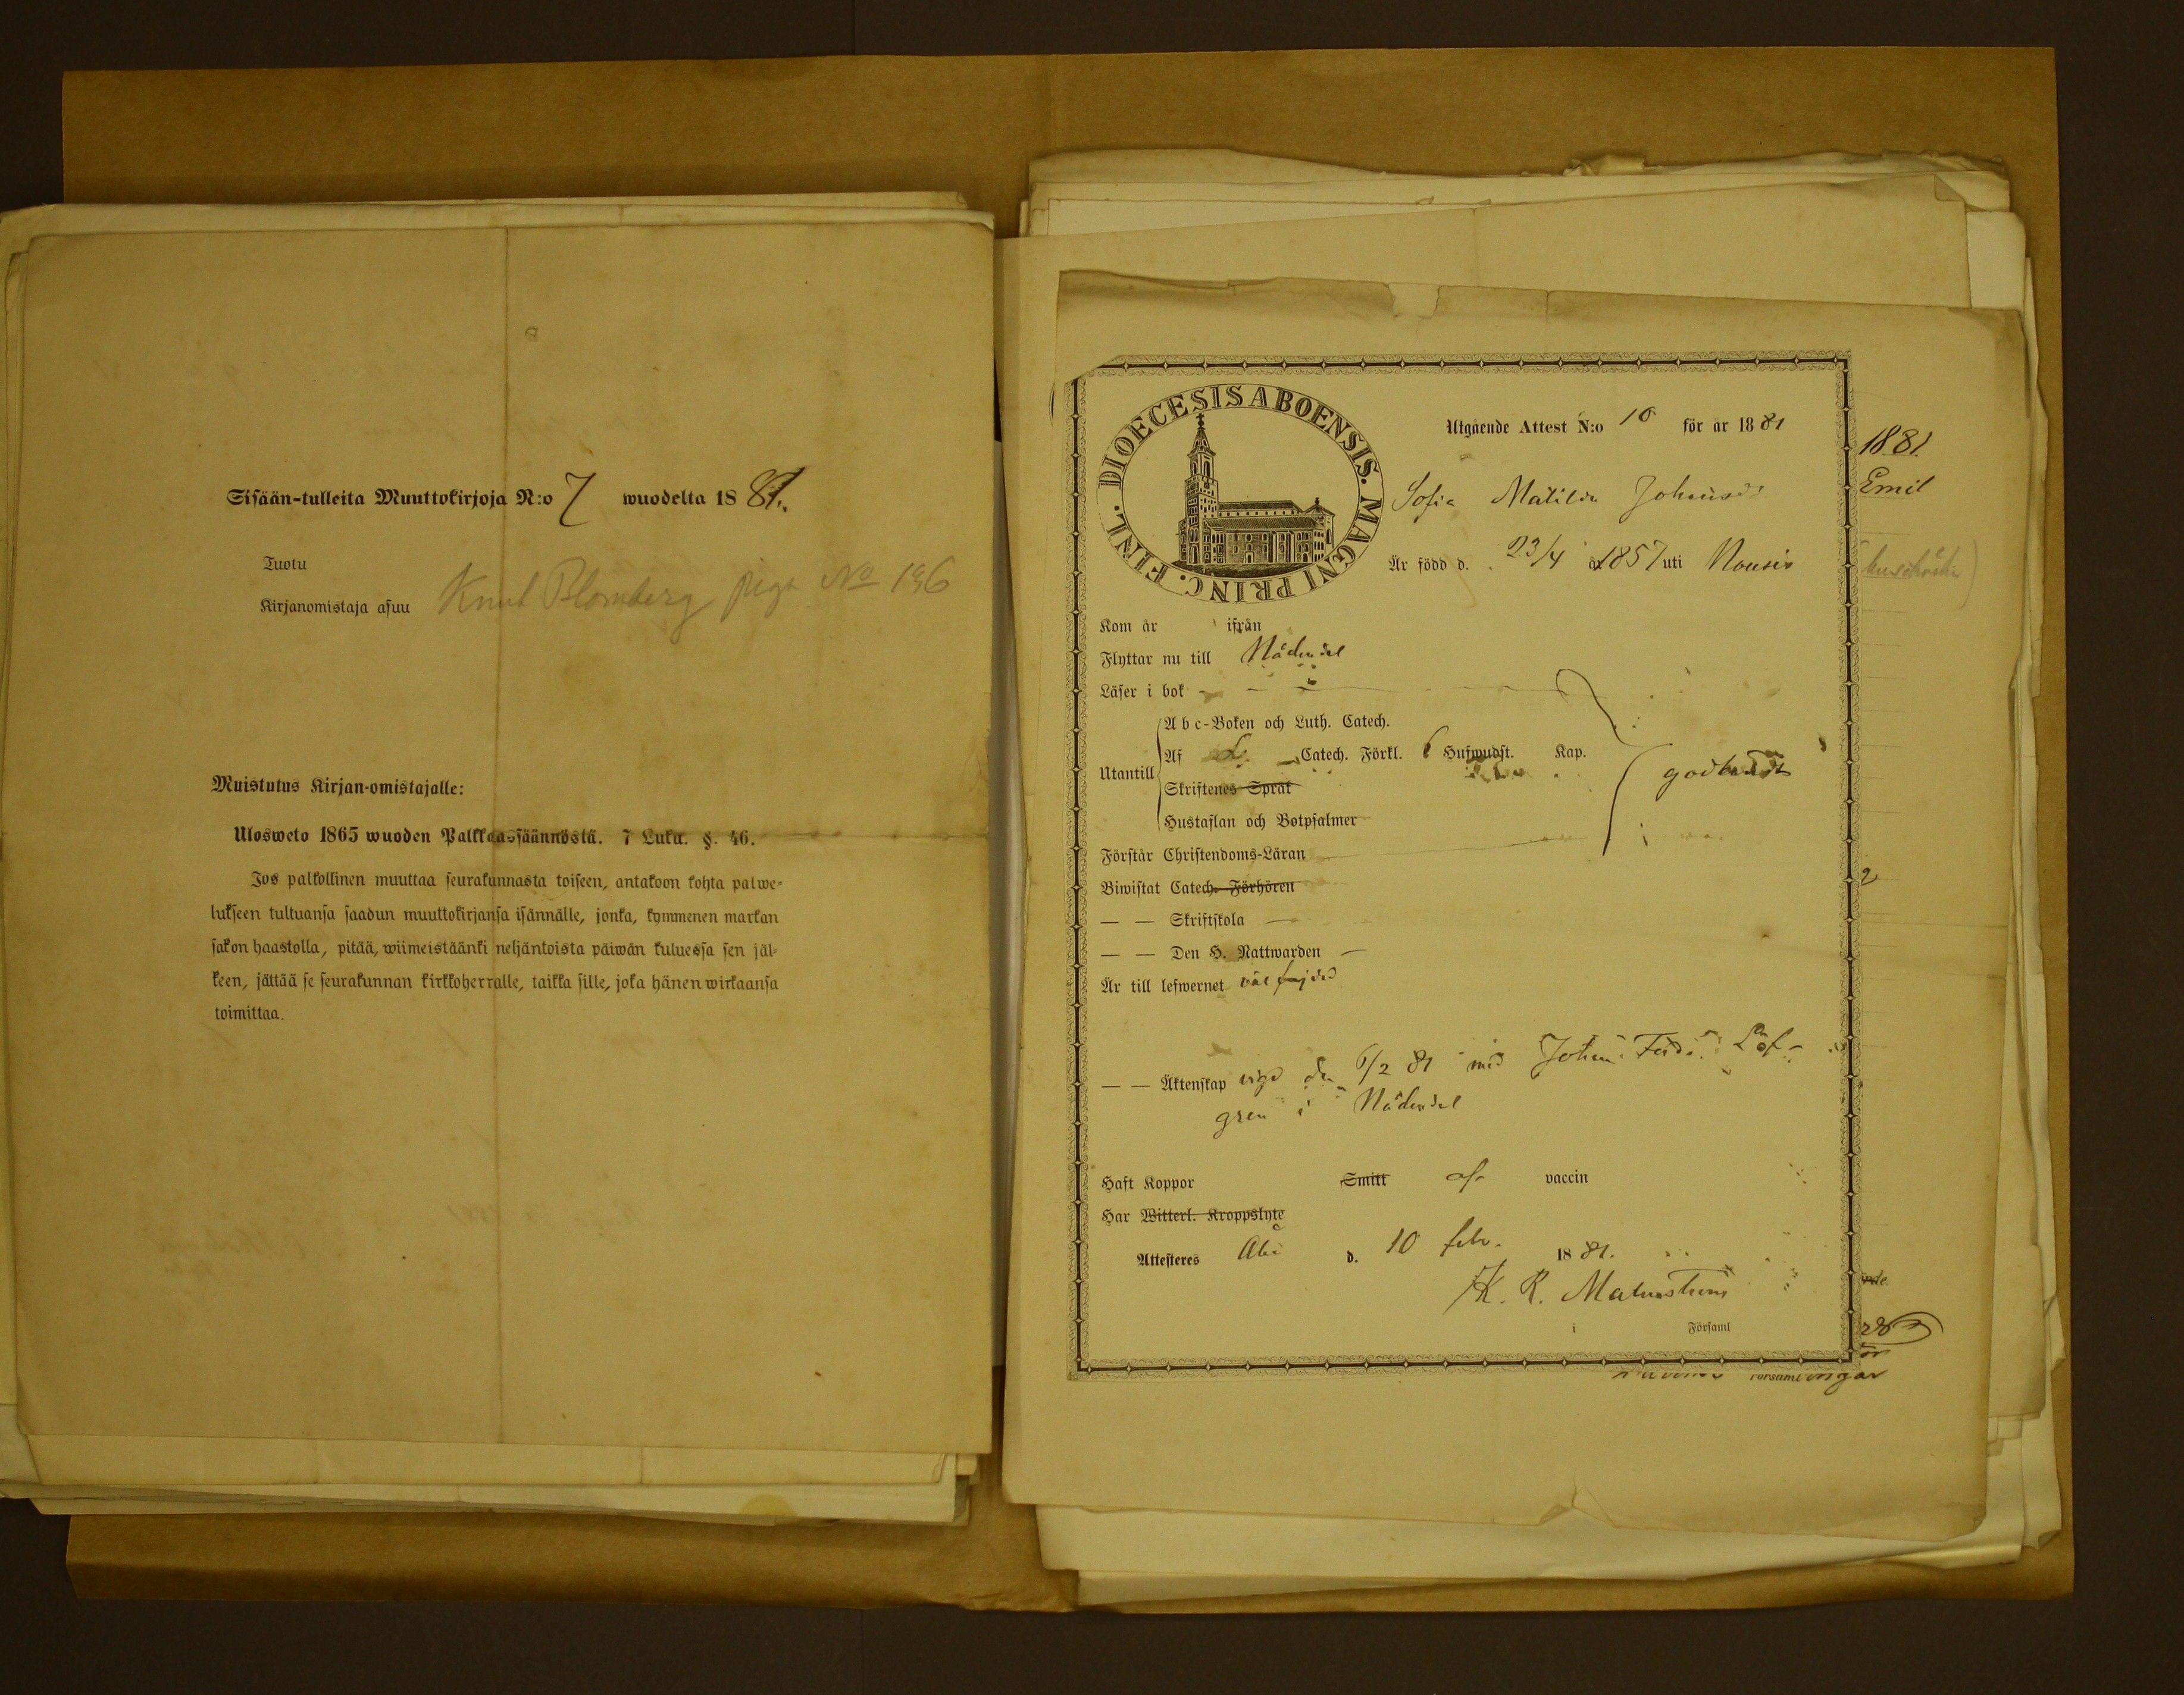 Sisään-tulleita Muuttokirjoja N:o 7 wuodelta 1881.
Tuotu
Kirjanomistaja asuu Knut Blomberg piga No 196
Muistutus Kirjan-omistajalle:
Ulosweto 1865 wuoden Palkkaussäännöstä. 7 Luku. §. 46.
Jos palkollinen muuttaa seurakunnasta toiseen, antakoon kohta palwe-
lukseen tultuansa saadun muuttokirjansa isännälle, jonka, kymmenen markan
sakon haastolla, pitää, wiimeistäänki neljäntoista päiwän kuluessa sen jäl-
keen, jättää se seurakunnan kirkkoherralle, taikka sille, joka hänen wirkaansa
toimittaa.
DIOECESIS ABOENSIS. MAGNI PRINC. FINL.
Utgående Attest N:o 10 för år 1881
Sofia Matilda Johansdr
Är född d. 23/4 å 1857 uti Nousis
Kom år ifrån
Flyttar nu till Nådendal
Läser i bok
Utantill
A b c-Boken och Luth. Catech.
Af L. Catech. Förkl. 6 Hufwudst. Kap.
Skriftenes Språk
godkändt
Hustaflan och Botpsalmer
Förstår Christendoms-Läran
Biwistat Catech. Förhören
— — Skriftskola
— — Den H. Nattwarden
Är till lefwernet väl frejdad
— — Äktenskap vigd den 6/2 81 med Johan Ferd. Löf-
gren i Nådendal
Haft Koppor Smitt af vaccin
Har Witterl. Kroppslyte
Attesteres Åbo d. 10 febr. 1881.
K. R. Malmström
i Församl
1881
Emil
2
nde
församlingar